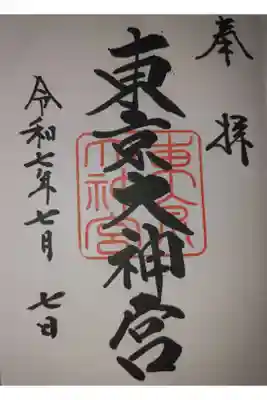 奉拝
東京大神宮
東京大神宮
令和七年七月七日